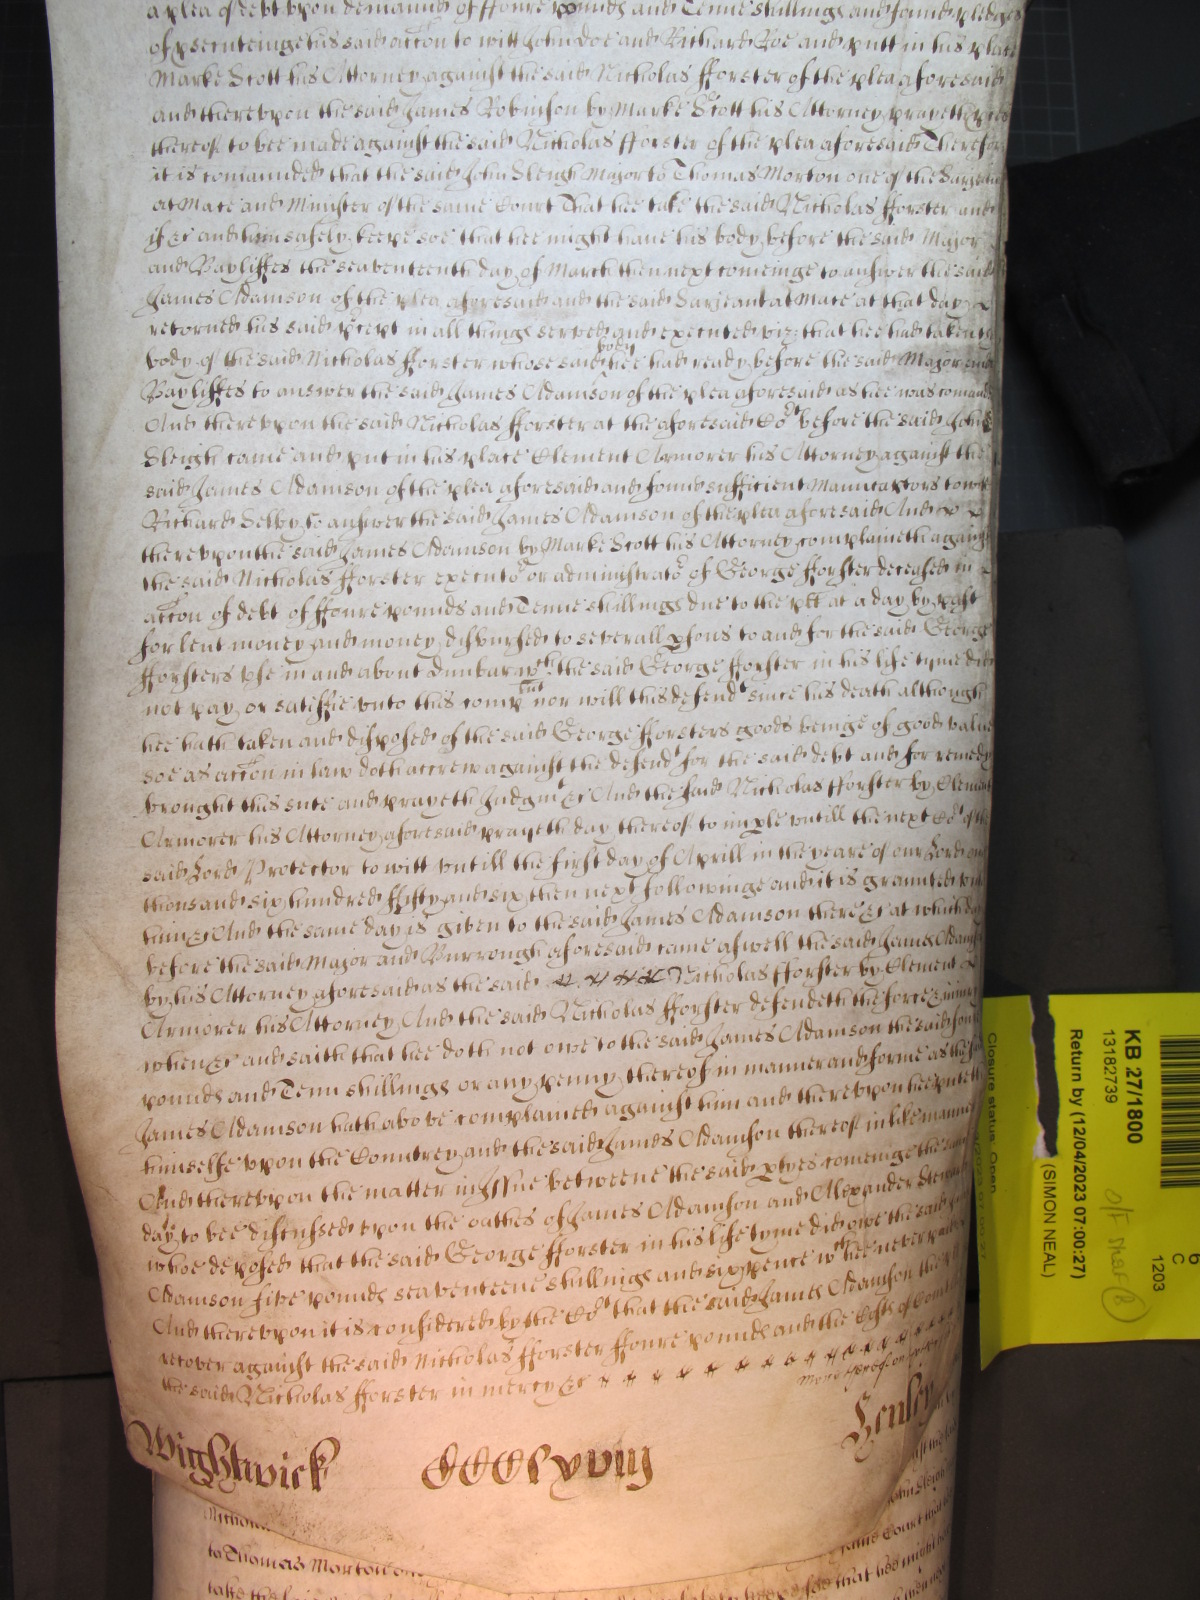 a plea of debt vpon demaund of ffoure pounds and Tenne shillings and found pledges
of psecuteinge his said accon to witt John Doe and Richard Roe and putt in his place
Marke Scott his Attorney against the said Nicholas fforster of the plea aforesaid
and therevpon the said James Robinson by Marke Scott his Attorney prayeth pces
thereof to bee made against the said Nicholas fforster of the plea aforesaid Therefore
it is comaunded that the said John Sleigh Major to Thomas Morton one of the Sarjeants
at Mace and Minister of the same Court That hee take the said Nicholas fforster and
if &c and him safely keepe soe that hee might have his body before the said Major
and Bayliffes the seaventeenth day of March then next comeinge to answer the said
James Adamson of the plea aforesaid and the said Sarjeant at Mace at that day
retorned his said pcept in all things served and executed viz: that hee had taken the
body of the said Nicholas fforster whose said body hee had ready before the said Major and
Bayliffes to answer the said James Adamson of the plea aforesaid as hee was comaund
And therevpon the said Nicholas fforster at the aforesaid Cot before the said John
Sleigh came and put in his place Clement Armorer his Attorney against the
said James Adamson of the plea aforesaid and found sufficient Manucaptors to witt
Richard Selby to answer the said James Adamson of the plea aforesaid And
therevpon the said James Adamson by Marke Scott his Attorney complaineth against
the said Nicholas fforster executor or administrator of George fforster deceased in
accon of debt of ffoure pounds and Tenne shillings due to the plt at a day by past
for lent money and money disbursed to severall psons to and for the said George
fforsters vse in and about Dunbar wch the said George fforster in his life tyme did
not pay or satisfie vnto this complnt nor will this defendt since his death although
hee hath taken and disposed of the said George fforsters goods beinge of good value
soe as accon in law doth accrew against the defendt for the said debt and for remedy
brought this sute and prayeth Judgmt &c And the said Nicholas fforster by Clement
Armorer his Attorney aforesaid prayeth day thereof to imple vntill the next Cot of the
said Lord Protector to witt vntill the first day of Aprill in the yeare of our Lord one
thousand six hundred ffifty and six then next followinge and it is graunted vnto
him &c And the same day is given to the said James Adamson there &c at which day
before the said Major and Burrough aforesaid came aswell the said James Adamson
by his Attorney aforesaid as the said Nicholas fforster by Clement
Armorer his Attorney And the said Nicholas fforster defendeth the force & iniury
when &c and saith that hee doth not owe to the said James Adamson the said foure
pounds and Tenn shillings or any penny thereof in manner and forme as the said
James Adamson hath above complained against him and therevpon hee putteth
himselfe vpon the Countrey and the said James Adamson thereof in like manner
And therevpon the matter in Issue betweene the said ptyes comeinge the same
day to bee discussed vpon the oathes of James Adamson and Alexander Steward
whoe deposed that the said George fforster in his life tyme did owe the said
Adamson five pounds seaventeene shillings and sixpence wch hee never paid
And therevpon it is considered by the Cot that the said James Adamson the
recover against the said Nicholas fforster ffoure pounds and the Costs of Court
the said Nicholas fforster in mercy &c
Wightwick CCCClxviij Henley
Nichola
to Thomas Morton one
take the
KB 27/1800
13182739
Return by (12/04/2023 07:00:27)
(SIMON NEAL)
Closure status: Open
6
C
1203